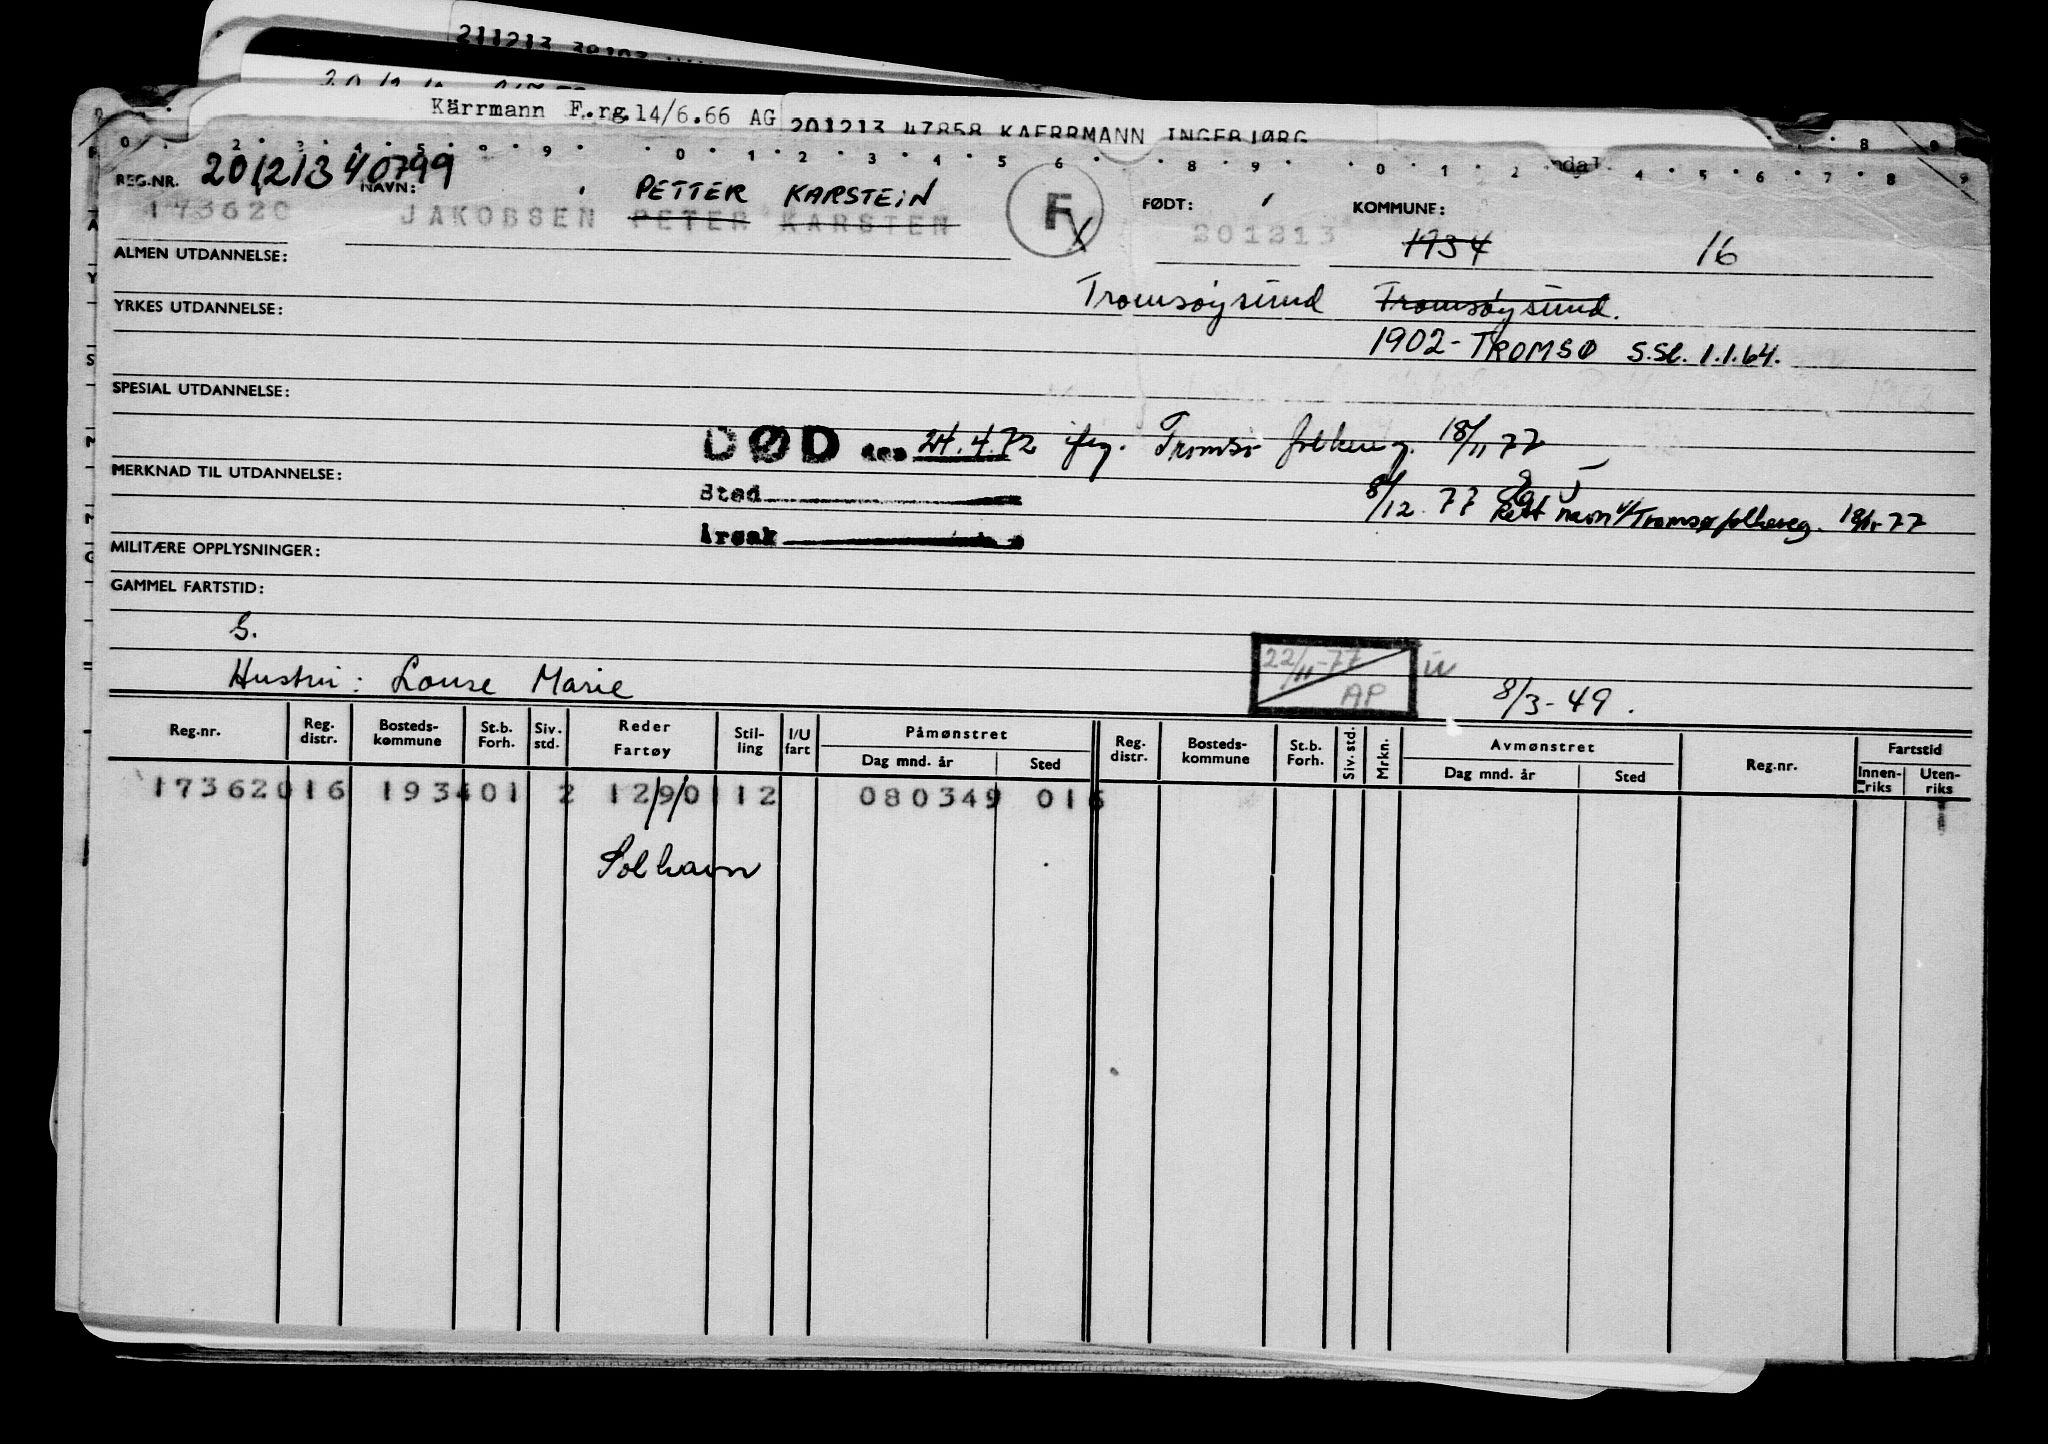 211213
Kärrmann F.rg.14/6.66 AG
201213 47858 KAERRMANN INGEBJØRG
REG.NR. 201213 40799 NAVN: PETTER KARSTEIN FØDT: KOMMUNE:
173620 JAKOBSEN PETER KARSTEN F 201213 1934 16
ALMEN UTDANNELSE:
Tromsøysund Tromsøysund.
YRKES UTDANNELSE:
1902- TROMSØ S.Sl. 1.1.64.
SPESIAL UTDANNELSE:
DØD den 24.4.72 Tromsø folkereg. 18/11 77
MERKNAD TIL UTDANNELSE:
Sted 8/12 77 Rett navn Tromsø folkereg. 18/11-77
Årsak
MILITÆRE OPPLYSNINGER:
GAMMEL FARTSTID:
S.
22/11-77 AP
Hustru: Louse Marie 8/3-49.
Reg.nr. Reg. distr. Bosteds-kommune St.b. Forh. Siv. std. Reder Fartøy Stil-ling I/U fart Påmønstret Dag mnd. år Sted Reg. distr. Bosteds-kommune St.b. Forh. Siv. std. Mrkn. Avmønstret Dag mnd. år Sted Reg.nr. Fartstid Innen-riks Uten-riks
173620 16 1934 01 2 12/9/0 12 080349 016
Solhavn